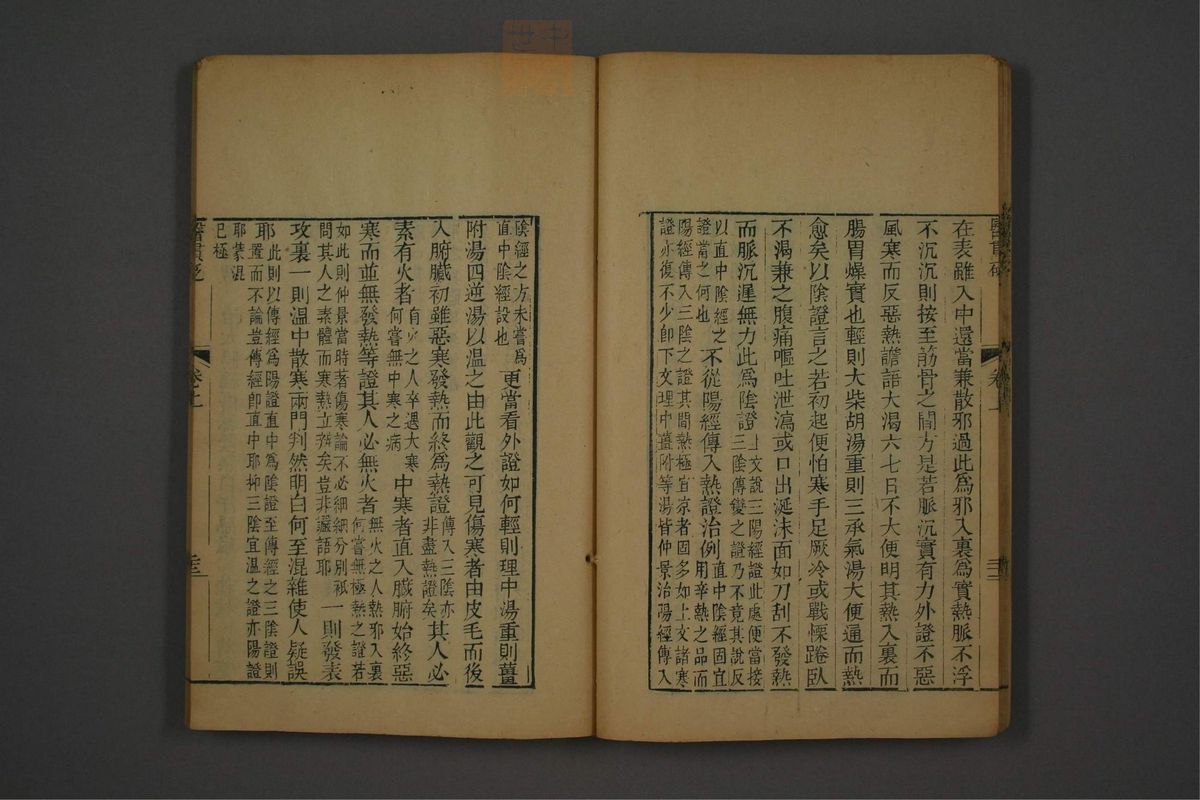 在表雖入中還當兼散邪過此爲邪入裏爲實熱脈不浮
不沉沉則按至筋骨之間方是若脈沉實有力外證不惡
風寒而反惡熱譫語大渴六七日不大便明其熱入裏而
腸胃燥實也輕則大柴胡湯重則三承氣湯大便通而熱
愈矣以陰證言之若初起便怕寒手足厥冷或戰慄踡臥
不渴兼之腹痛嘔吐泄瀉或口出涎沫面如刀刮不發熱
而脈沉遲無力此爲陰證上文說三陽經證此處便當接三陰傳變之證乃不竟其說反
以直中陰經之證當之何也不從陽經傳入熱證治例直中陰經固宜用辛熱之品而
陽經傳入三陰之證其間熱極宜凉者固多如上文諸寒
證亦復不少卽下文理中薑附等湯皆仲景治陽經傳入
陰經之方未嘗爲直中陰經設也更當看外證如何輕則理中湯重則薑
附湯四逆湯以溫之由此觀之可見傷寒者由皮毛而後
入腑臟初雖惡寒發熱而終爲熱證傳入三陰亦非盡熱證矣其人必
素有火者有火之人卒遇大寒何嘗無中寒之病中寒者直入臟腑始終惡
寒而並無發熱等證其人必無火者無火之人熱邪入裏何嘗無極熱之證若
如此則仲景當時著傷寒論不必細細分別祇問其人之素體而寒熱立辨矣豈非讝語耶一則發表
攻裏一則溫中散寒兩門判然明白何至混雜使人疑誤
耶此則以傳經爲陽證直中爲陰證至傳經之三陰證則置而不論豈傳經卽直中耶抑三陰宜溫之證亦陽證
耶蒙混已極
醫貫砭
卷上